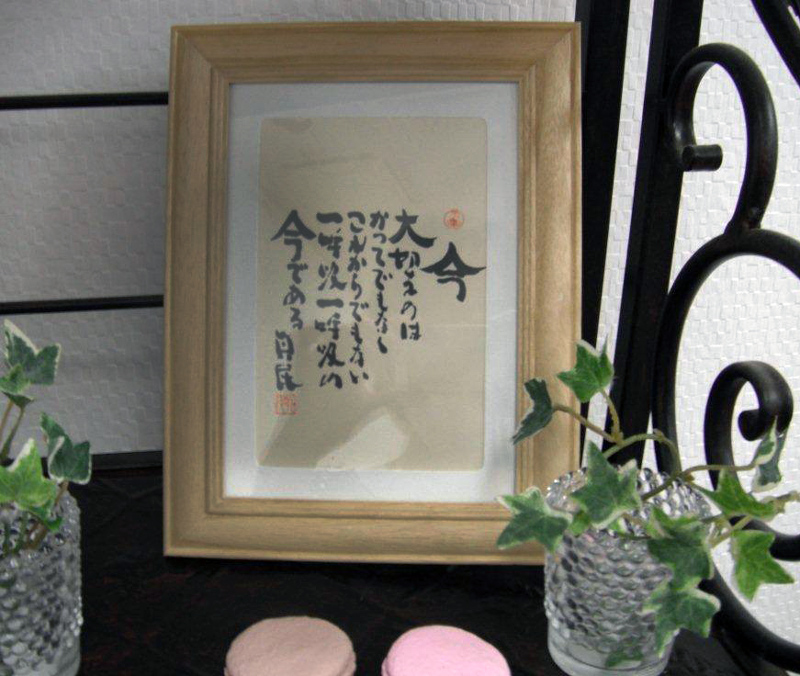 今
大切なのは
かつてでもなく
これからでもない
一呼吸一呼吸の
今である